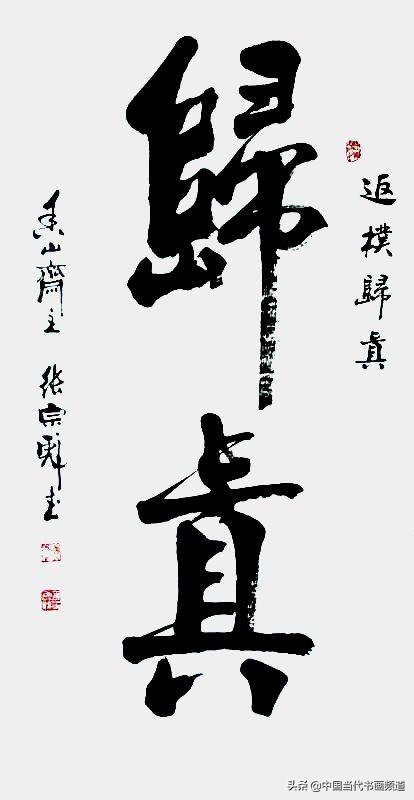 返樸歸真
歸真
山齋主 张宗
头条 @中国当代书画频道